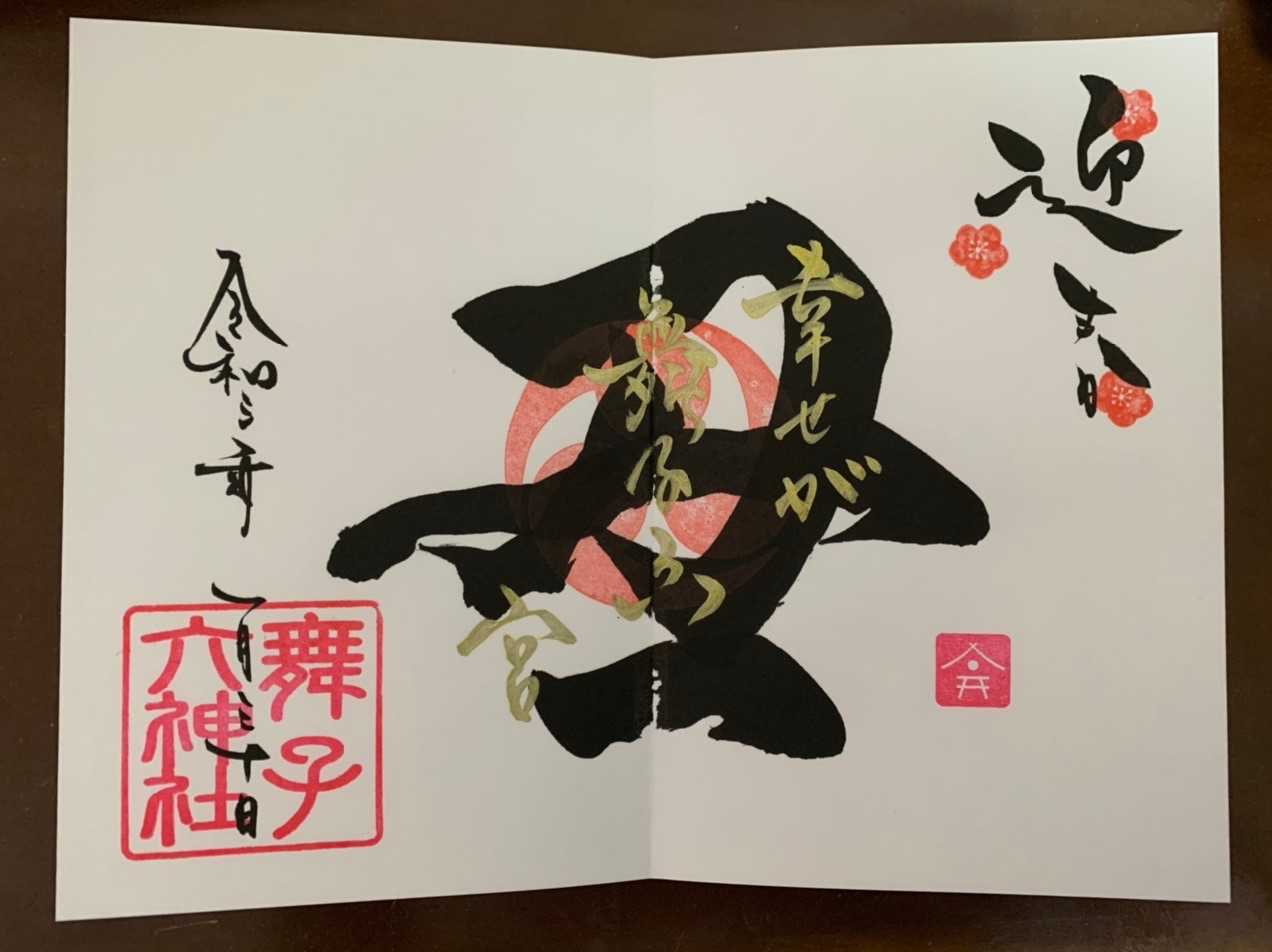 迎春
幸せが
舞子
宮
令和三年 一月三十日
舞子
六神社